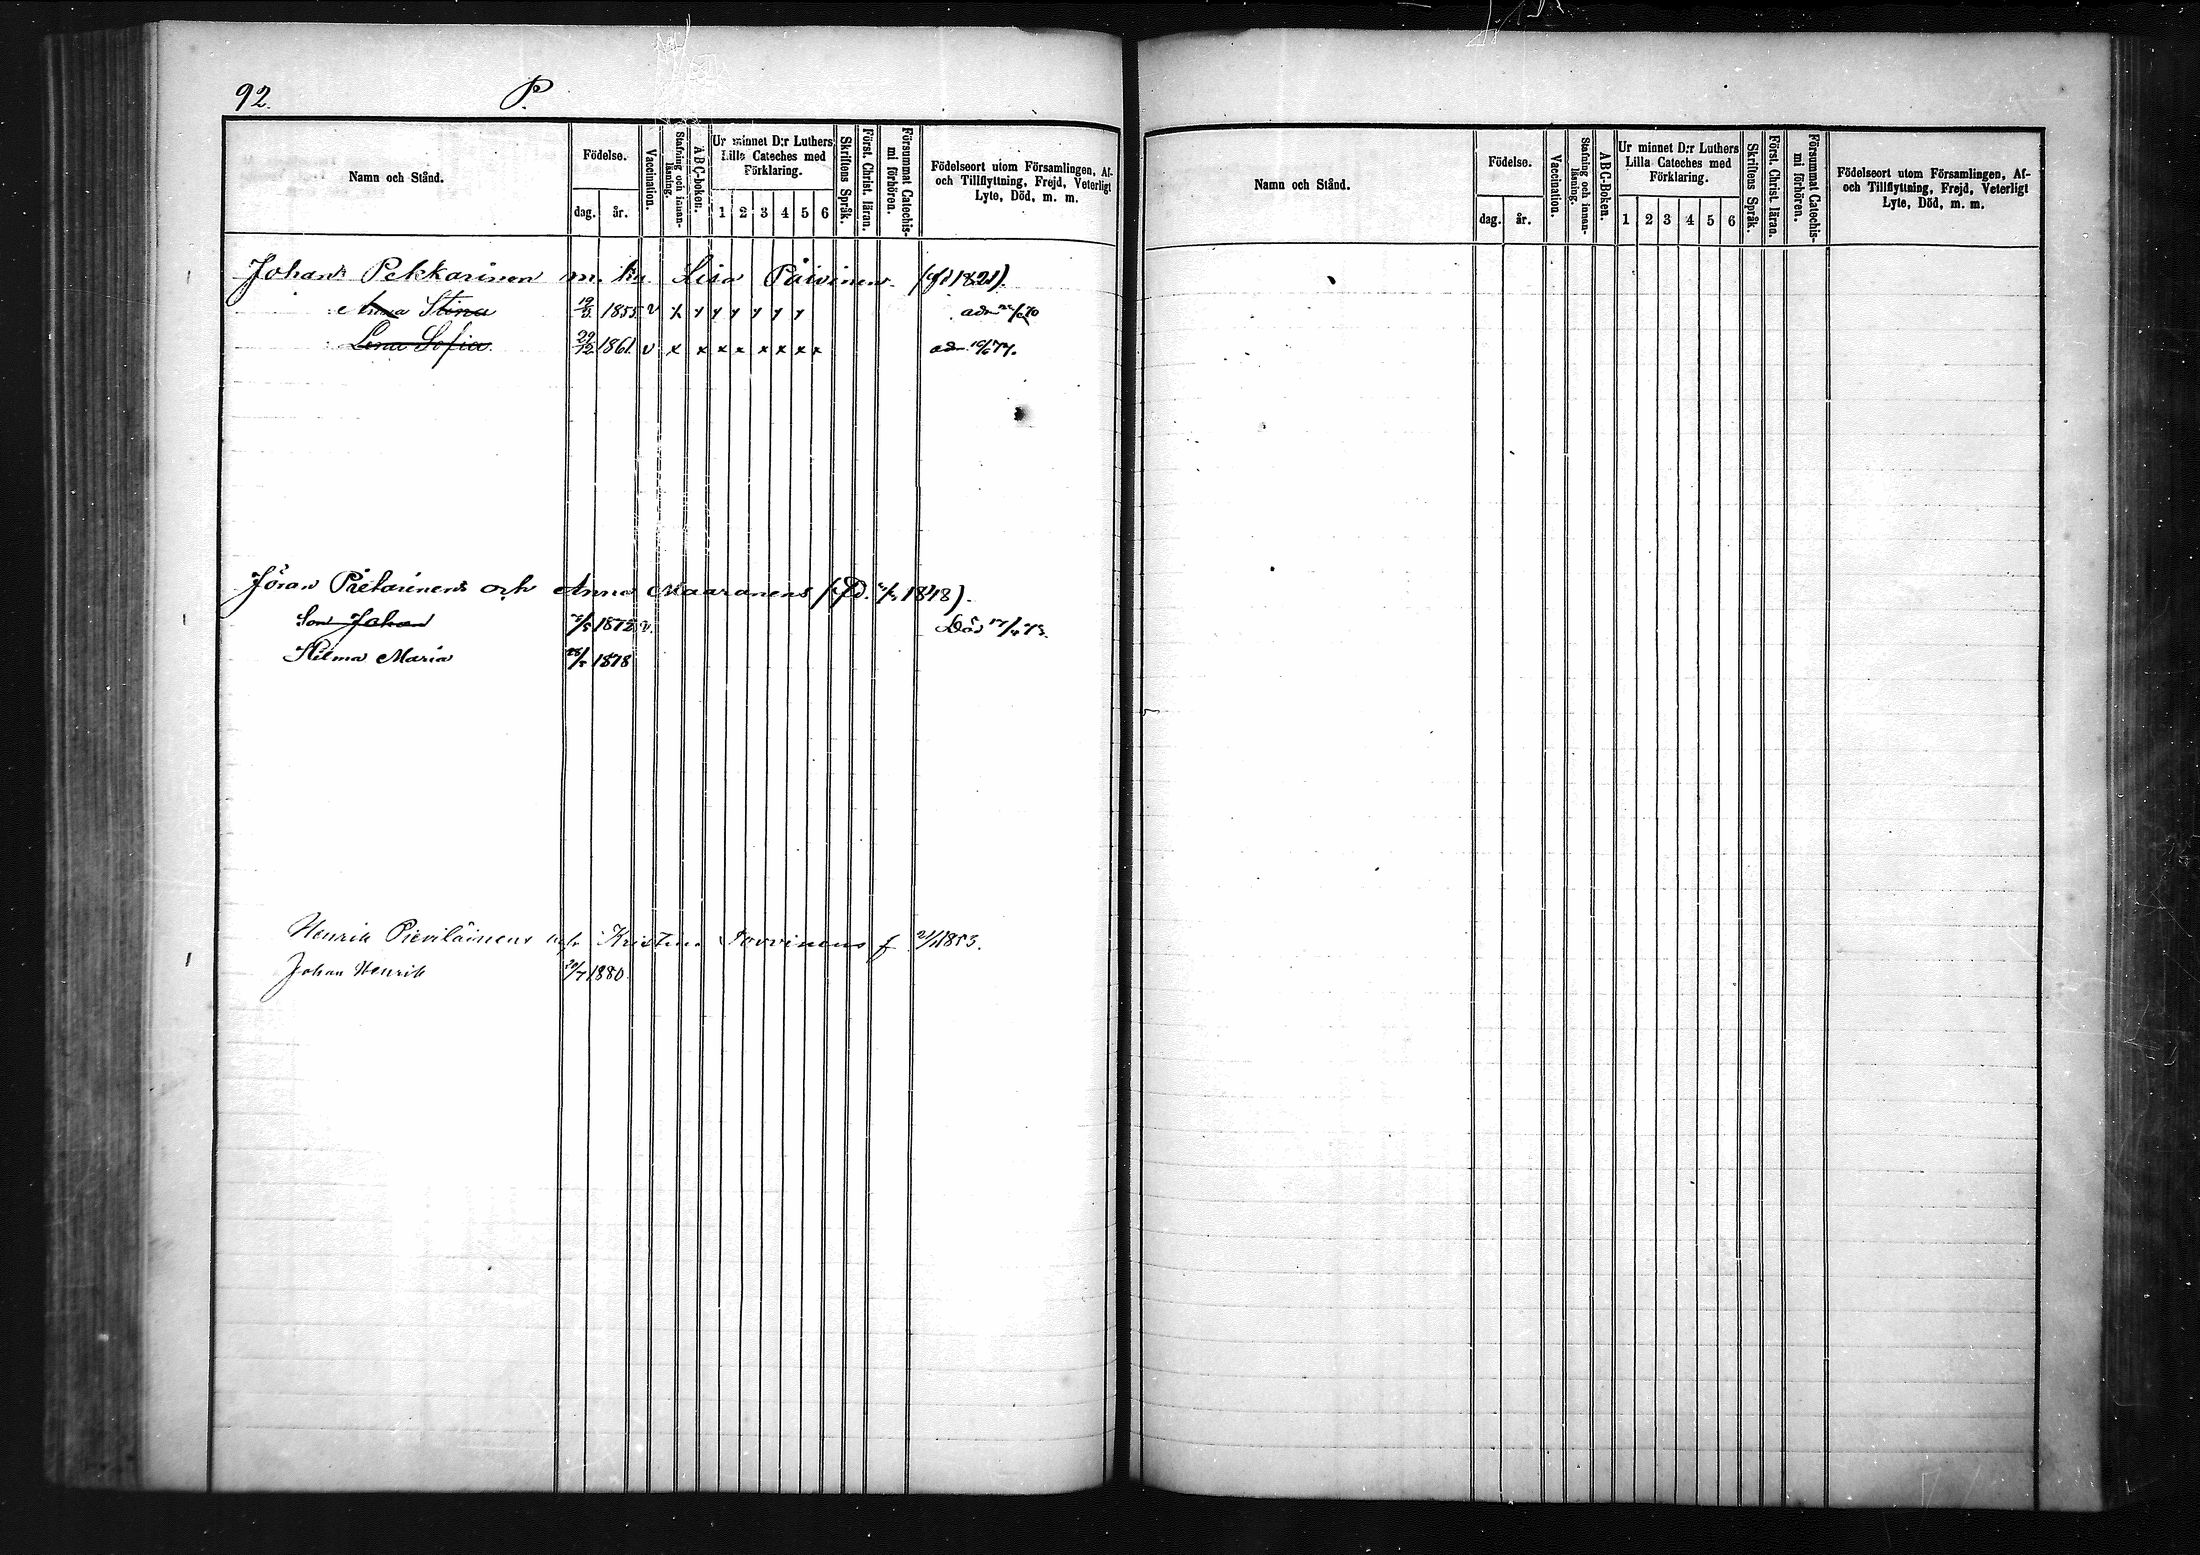 92. P.
Namn och Stånd. Födelse. dag. år. Vaccination. Stafning och innanläsning. ABC-boken. Ur minnet D:r Luthers Lilla Cateches med Förklaring. 1 2 3 4 5 6 Skriftens Språk. Först. Christ. läran. Försummat Catechismi förhören. Födelseort utom Församlingen, Af- och Tillflyttning, Frejd, Veterligt Lyte, Död, m. m.
Johan Pekkarinen m. hu. Lisa Päivinen (fd 1821).
Anna Stina 19/3 1855 v x y y y y y y adm /6 70
Lena Sofia 29/12 1861. v x x x x x x x adm 10/6 77.
Jöran Pietarinens och Anna Maaranens (fd. 1848).
Son Johan 1872 v. Död 17/4 73.
Hilma Maria 28/ 1878
Henrik Pieviläinens och Kristina f 21/1 1853.
Johan Henrik 20/7 1880.
Namn och Stånd. Födelse. dag. år. Vaccination. Stafning och innanläsning. ABC-Boken. Ur minnet D:r Luthers Lilla Cateches med Förklaring. 1 2 3 4 5 6 Skriftens Språk. Först. Christ. läran. Försummat Catechismi förhören. Födelseort utom Församlingen, Af- och Tillflyttning, Frejd, Veterligt Lyte, Död, m. m.